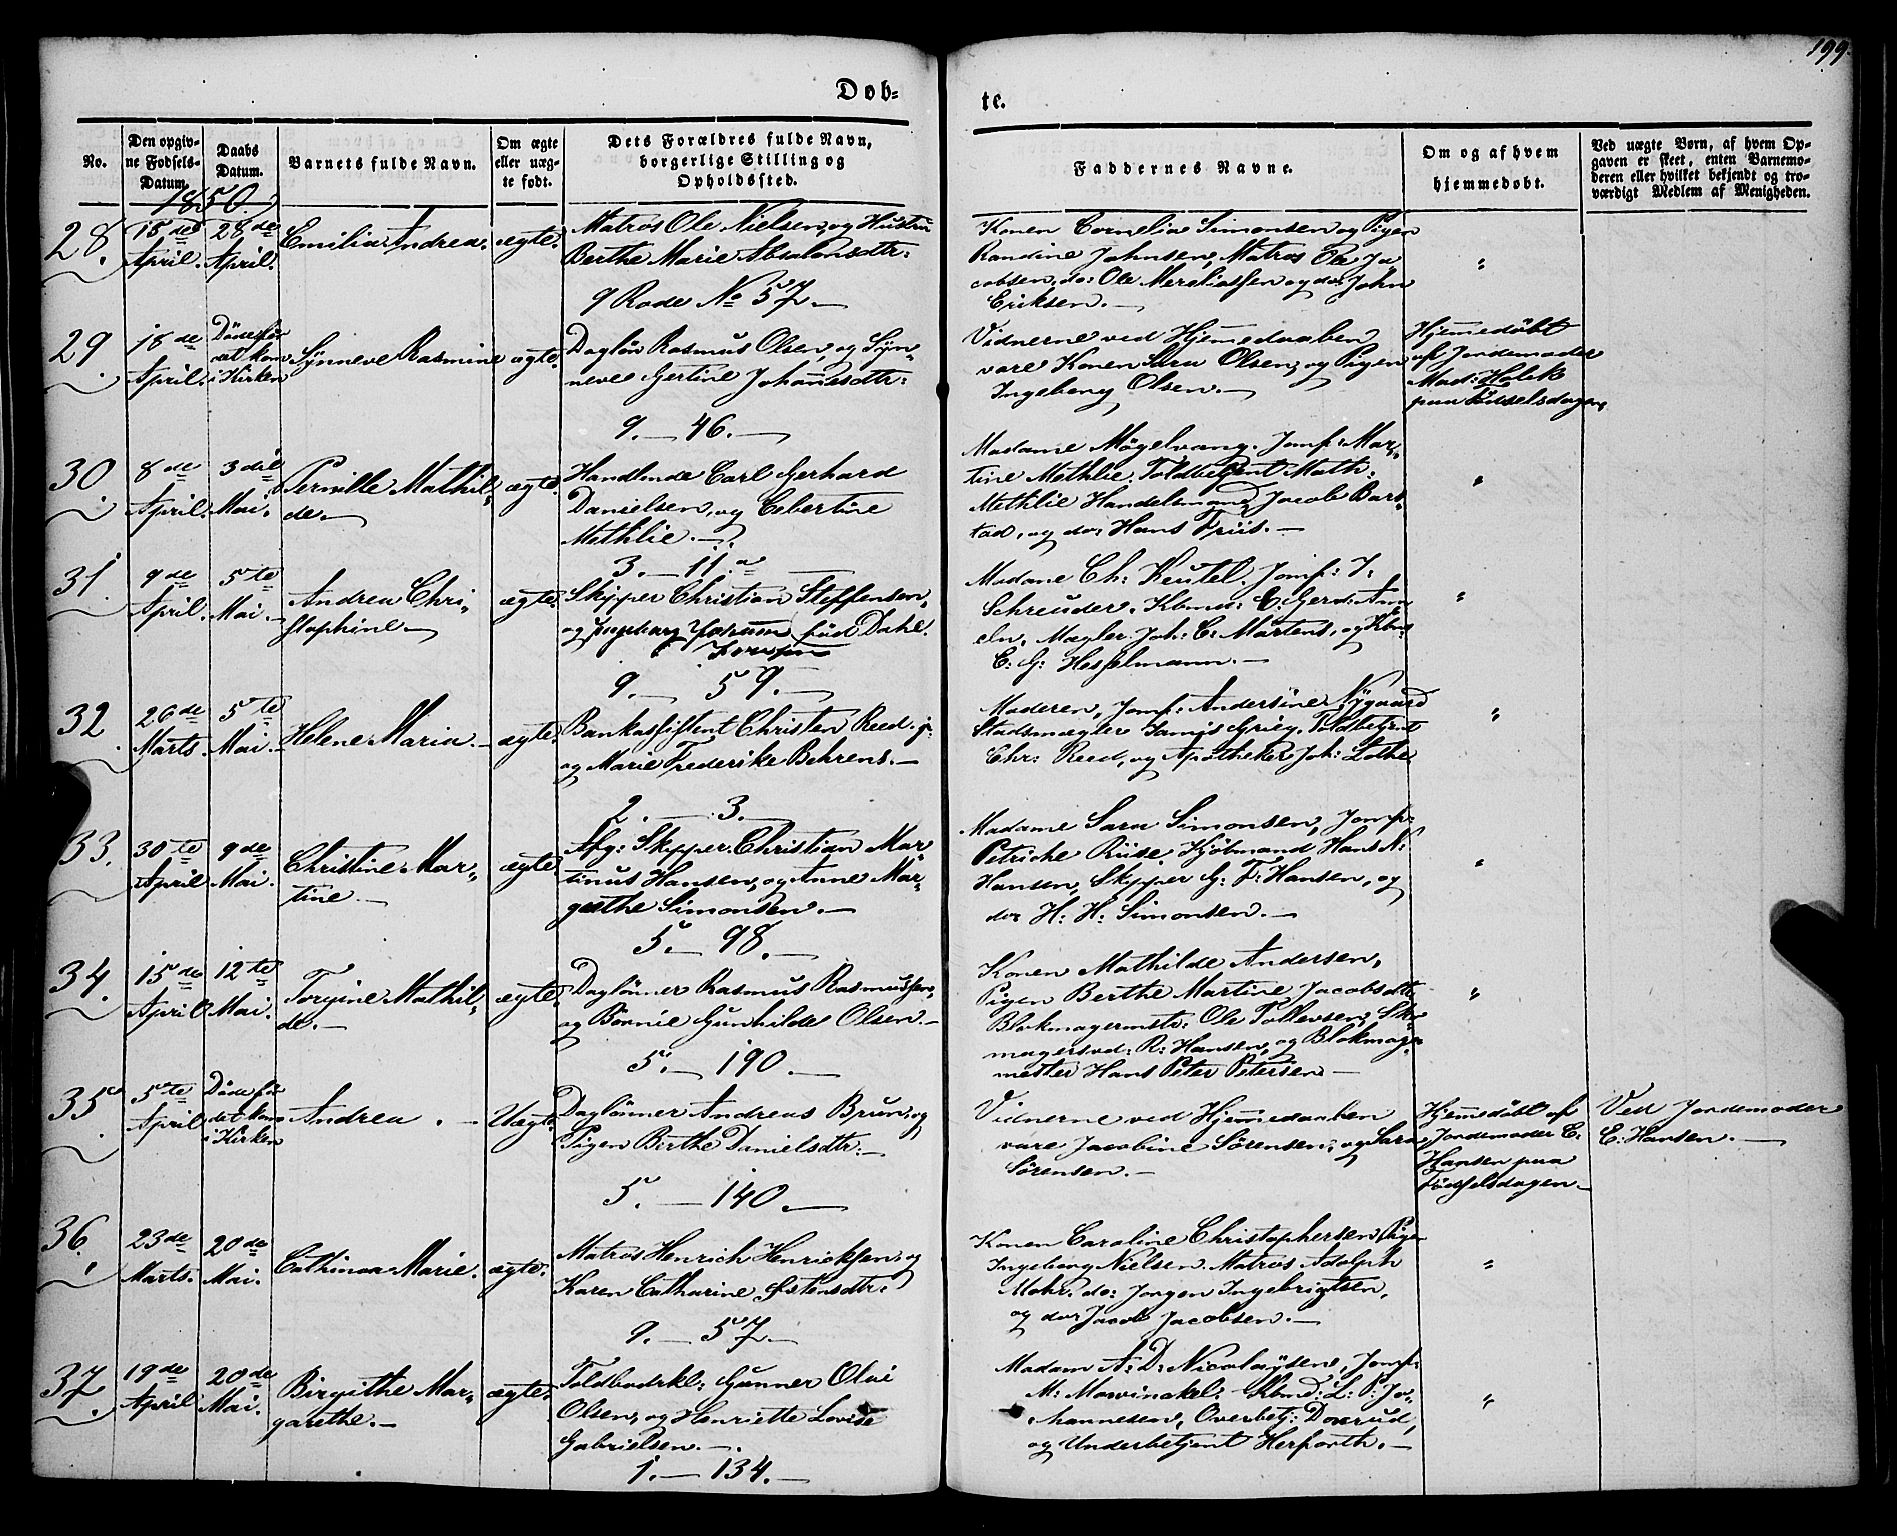 199.
Døb=
te.
No.
Den opgiv-
ne Fødsels-
Datum.
Daabs
Datum.
Barnets fulde Navn.
Om ægte
eller uæg-
te født.
Dets Forældres fulde Navn,
borgerlige Stilling og
Opholdssted.
Faddernes Navne.
Om og af hvem
hjemmedøbt.
Ved uægte Børn, af hvem Op-
gaven er skeet, enten Barnemo-
deren eller hvilket bekjendt og tro-
værdigt Medlem af Menigheden.
1850.
28.
18de
April.
28de
April.
Emilia Andrea.
ægte.
Matros Ole Nielsen, og Hustru
Berthe Marie Absalonsdtr:
9 Rode No 57.
Konen Cornelia Simonsen og Pigen
Randine Johnsen, Matros Ole Ja
cobsen, do: Ole og do: John
Eriksen.
"
29.
18de
April.
Døde før
det kom
i Kirken
Synneve Rasmine
ægte.
Dagløn Rasmus Olsen, og Syn-
neve Gertine Johannesdtr:
9. — 46.
Vidnerne ved Hjemmedaaben
vare Konen Sara Olsen, og Pigen
Ingeborg Olsen.
Hjemmedøbt
af Jordemoder
Mad: Holck
paa Fødselsdagen.
30
8de
April.
3die
Mai.
Pernille Mathil-
de.
ægte.
Handlende Carl Gerhard
Danielsen, og Cebertine
Methlie.
3. — 11.a
Madame Møgelvang. Jomf: Mar-
tine Methlie. Toldbetjent Math:
Methlie Handelsmand Jacob Bars-
tad, og do: Hans Friis.
"
31.
9de
April.
5te
Mai.
Andrea Chri-
stophine
ægte.
Skipper Christian Steffensen,
og Ingeborg født Dahl.
9. 59.
Madame Ch: Keutel. Jomf: I:
Schreuder. Kbmd: C: Gerd: Ann
eln, Mægler Joh: C: Martens, og Kbmd
C: G: Hesselmann.
"
32
26de
Marts.
5te
Mai.
Helene Maria.
ægte.
Bankassistent Christen Reed. j:
og Marie Frederike Behrens.
2. 3.
Moderen, Jomf: Andersine Nygaard
Stadsmægler Jamis Grieg. Toldbetjent
Chr: Reed, og Apotheker Joh: Lothe
"
33.
30te
April
9de
Mai.
Christine Mar-
tine
ægte
Afg: Skipper Christian Mar-
tinus Hansen, og Anne Mar-
grethe Simonsen.
5. — 98.
Madame Sara Simonsen, Jomf:
Petriche Riise. Kjøbmand Hans N:
Hansen, Skipper G: F: Hansen, og
do: H: H: Simonsen.
"
34.
15de
April
12te
Mai.
Torgine Mathil-
de.
ægte.
Daglønner Rasmus Rasmussen,
og Børnie Gunhilde Olsen.
5. — 190.
Konen Mathilde Andersen,
Pigen Berthe Martine Jacobsdtr
Blokmagermstr: Ole Tollevsen, Sko-
magersvd: R: Hansen, og Blokmage-
mester Hans Peter Petersen
"
35
5te
April
Døde før
det kom
i Kirken
Andrea.
Uægte
Daglønner Andreas Brun, og
Pigen Birthe Danielsdtr:
5. — 140.
Vidnerne ved Hjemmedaaben
vare Jacobine Sørensen, og Sara
Sørensen.
Hjemmedøbt af
Jordemoder E:
Hansen paa
Fødselsdagen.
Ved Jordemoder
E: Hansen.
36.
23de
Marts.
20de
Mai.
Cathinca Marie.
ægte.
Matros Henrich Henricksen, og
Karen Catharine Østensdtr:
9. — 57.
Konen Caroline Christophersen, Pigen
Ingeborg Nielsen. Matros Adolph
Mohr. do: Jørgen Ingebrigtsen,
og do: Jacob Jacobsen.
"
37.
19de
April
20de
Mai.
Birgithe Mar-
garethe.
ægte.
Toldbodskl: Gunner Olai
Olsen, og Henriette Lovise
Gabrielsen.
1. — 134.
Madam A: D: Nicolaysen, Jomf:
M: Mowinckel: Kbmd: L: P: Jo-
hannesen, Overbetj: Doxrud,
og Underbetjent Herforth.
"